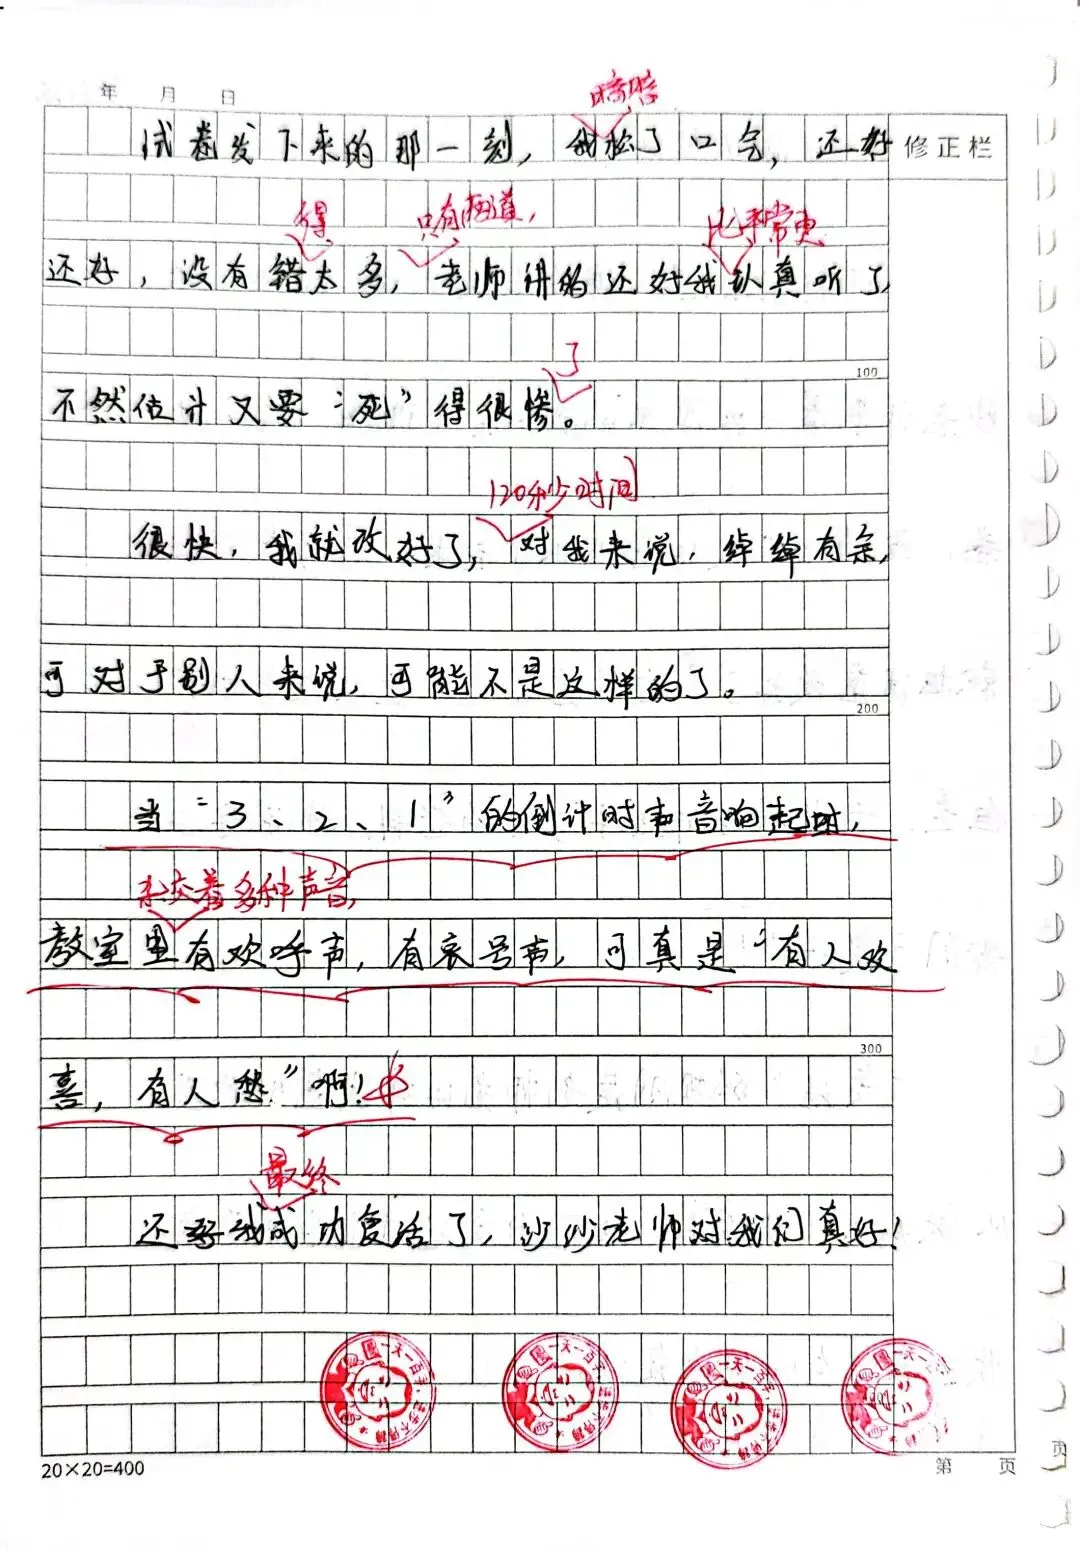 年 月 日
暗暗
试卷发下来的那一刻，我松了口气，还好
修正栏
得 只有两道， 比平常更
还好，没有错太多，老师讲的还好我认真听了，
100
了
不然估计又要“死”得很惨。
120秒时间
很快，我就改好了，对我来说，绰绰有余，
可对于别人来说，可能不是这样的了。
200
当“3、2、1”的倒计时声音响起时，
夹交着多种声音，
教室里有欢呼声，有哀号声，可真是“有人欢
300
喜，有人愁”啊！
最终
还好我成功复活了，沙沙老师对我们真好！
一天一百字，进步不得了
一天一百字，进步不得了
一天一百字，进步不得了
一天一百字，
20×20=400
第 页
页